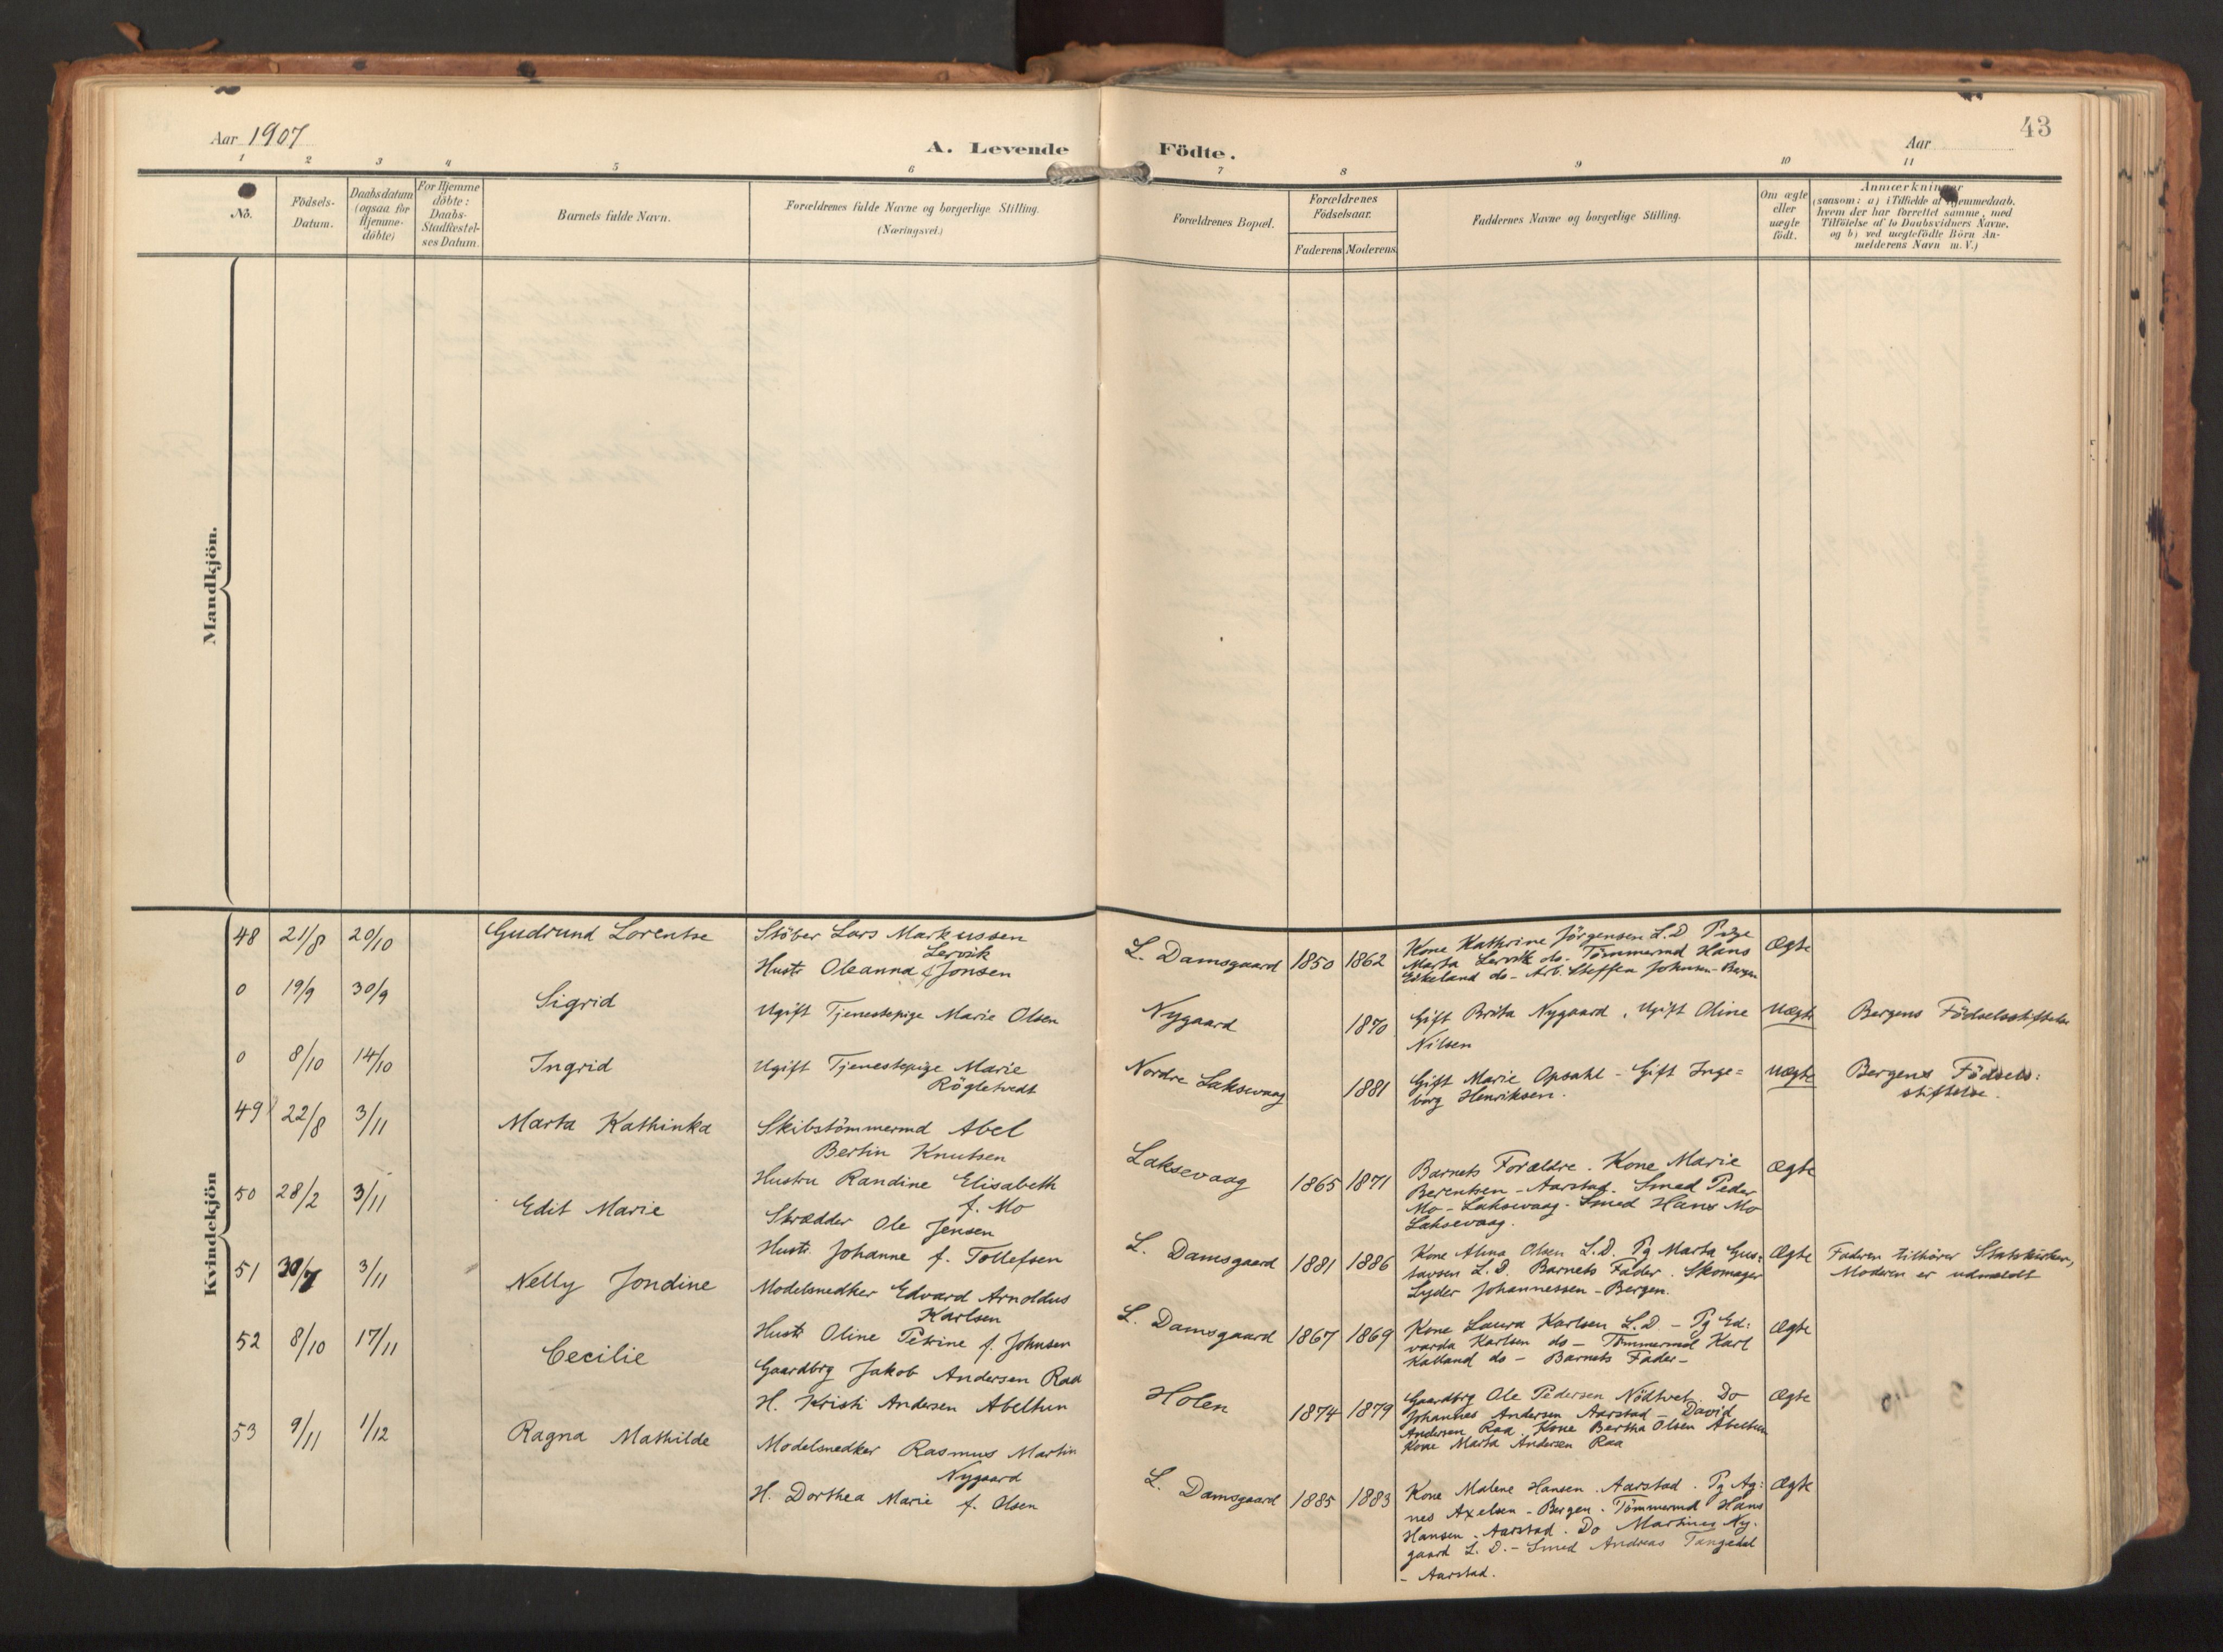 Aar 1907
A. Levende
Födte.
Aar
43
1 2 3 4 5 6 7 8 9 10 11
No.
Födsels-
Datum.
Daabsdatum
(ogsaa for
Hjemme-
döbte)
For Hjemme
döbte:
Daabs-
Stadfæstel-
ses Datum.
Barnets fulde Navn.
Forældrenes fulde Navne og borgerlige Stilling.
(Næringsvei.)
Forældrenes Bopæl.
Forældrenes
Födselsaar.
Faderens
Moderens
Faddernes Navne og borgerlige Stilling.
Om ægte
eller
uægte
födt.
Anmærkninger
(saasom: a) i Tilfælde af Hjemmedaab,
hvem der har forrettet samme, med
Tilföielse af to Daabsvidners Navne,
og b) ved uægtefödte Börn An-
melderens Navn m. V.)
Mandkjön.
Kvindekjön
48 21/8 20/10 Gudrund Lorentse
Stöber Lars Markussen
Lervik
Hustr Oleanna f Jonsen
L. Damsgaard 1850 1862
Kone Kathrine Jörgensen L.D Pige
Marta Lervik do. Tömmermd Hans
Eskeland do - Arb. Steffen Johnsen - Bergen
Ægte
0 19/9 30/9 Sigrid
Ugift Tjenestepige Marie Olsen
Nygaard 1870
Gift Brita Nygaard, Ugift Oline
Nilsen
Uægte
Bergens Födselsstiftelse
0 8/10 14/10 Ingrid
Ugift Tjenestepige Marie
Rögletvedt
Nordre Laksevaag 1881
Gift Marie Opsahl - Gift Inge=
borg Henriksen.
Uægte
Bergens Födsels:
stiftelse.
49 22/8 3/11 Marta Kathinka
Skibstömmermd Abel
Bertin Knutsen
Hustru Randine Elisabeth
f. Mo
Laksevaag 1865 1871
Barnets Forældre. Kone Marie
Berentsen - Aarstad. Smed Peder
Mo - Laksevaag. Smed Hans Mo
Laksevaag.
Ægte
50 28/2 3/11 Edit Marie
Skrædder Ole Jensen
Hustr. Johanne f. Tollefsen
L. Damsgaard 1881 1886
Kone Alma Olsen L.D. Pg Marta Gus:
tavsen L.D. Barnets Fader. Skomager
Lyder Johannessen - Bergen.
Ægte
Faderen tilhører Statskirken,
Moderen er udmeldt
51 30/7 3/11 Nelly Jondine
Modelsnedker Edvard Arnoldus
Karlsen
Hustr Oline Petrine f. Johnsen
L. Damsgaard 1867 1869
Kone Laura Karlsen L.D - Pg Ed:
varda Karlsen do - Tömmermd Karl
Kalland do - Barnets Fader -
Ægte
52 8/10 17/11 Cecilie
Gaardbrg Jakob Andersen Raa
H. Kristi Andersen Abeltun
Holen 1874 1879
Gaardbrg Ole Pedersen Nödtvet. Do
Johannes Andersen Aarstad - David
Andersen Raa. Kone Bertha Olsen Abeltun
Kone Marta Andersen Raa
Ægte
53 9/11 1/12 Ragna Mathilde
Modelsnedker Rasmus Martin
Nygaard
H. Dorthea Marie f. Olsen
L. Damsgaard 1885 1883
Kone Malene Hansen. Aarstad. Pg Ag:
nes Axelsen - Bergen. Tömmermd Hans
Hansen. Aarstad. Do Martines Ny.
gaard L.D. - Smed Andreas Tangedal
- Aarstad.
Ægte